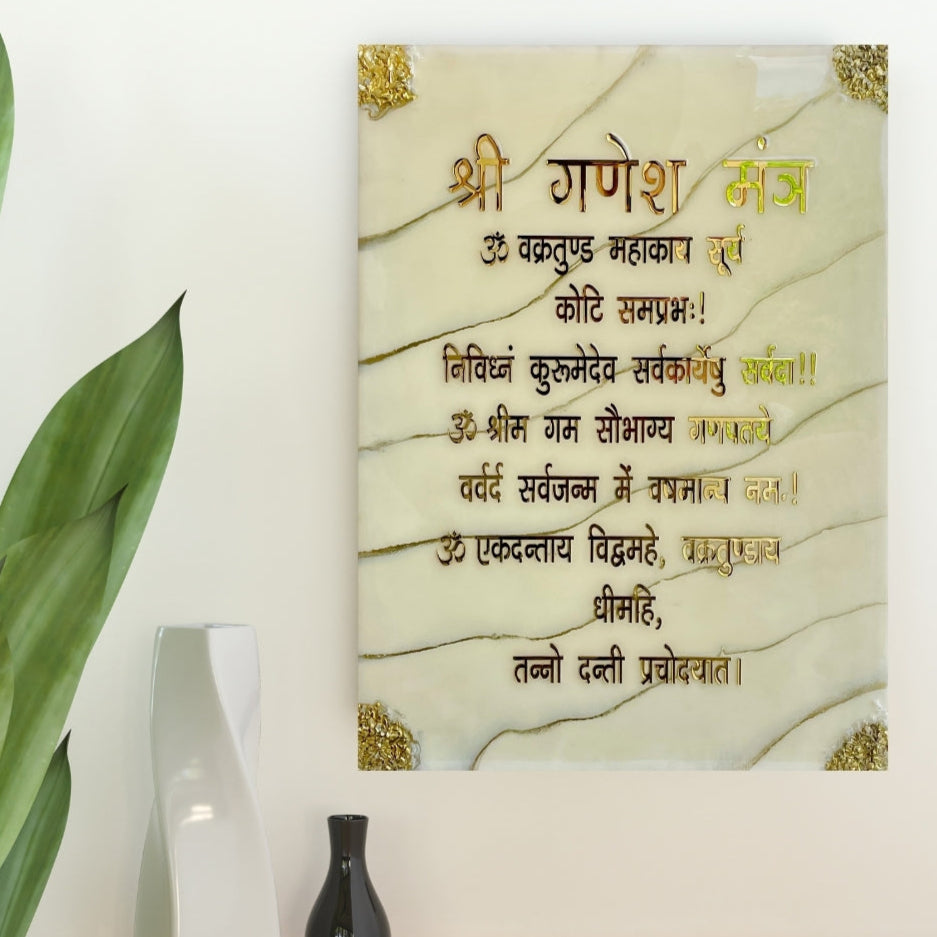 श्री गणेश मंत्र
ॐ वक्रतुण्ड महाकाय सूर्य
कोटि समप्रभः!
निविध्नं कुरूमेदेव सर्वकार्येषु सर्वदा!!
ॐ श्रीम गम सौभाग्य गणपतये
वर्वर्द सर्वजन्म में वषमान्य नम:!
ॐ एकदन्ताय विद्वमहे, वक्रतुण्डाय
धीमहि,
तन्नो दन्ती प्रचोदयात।